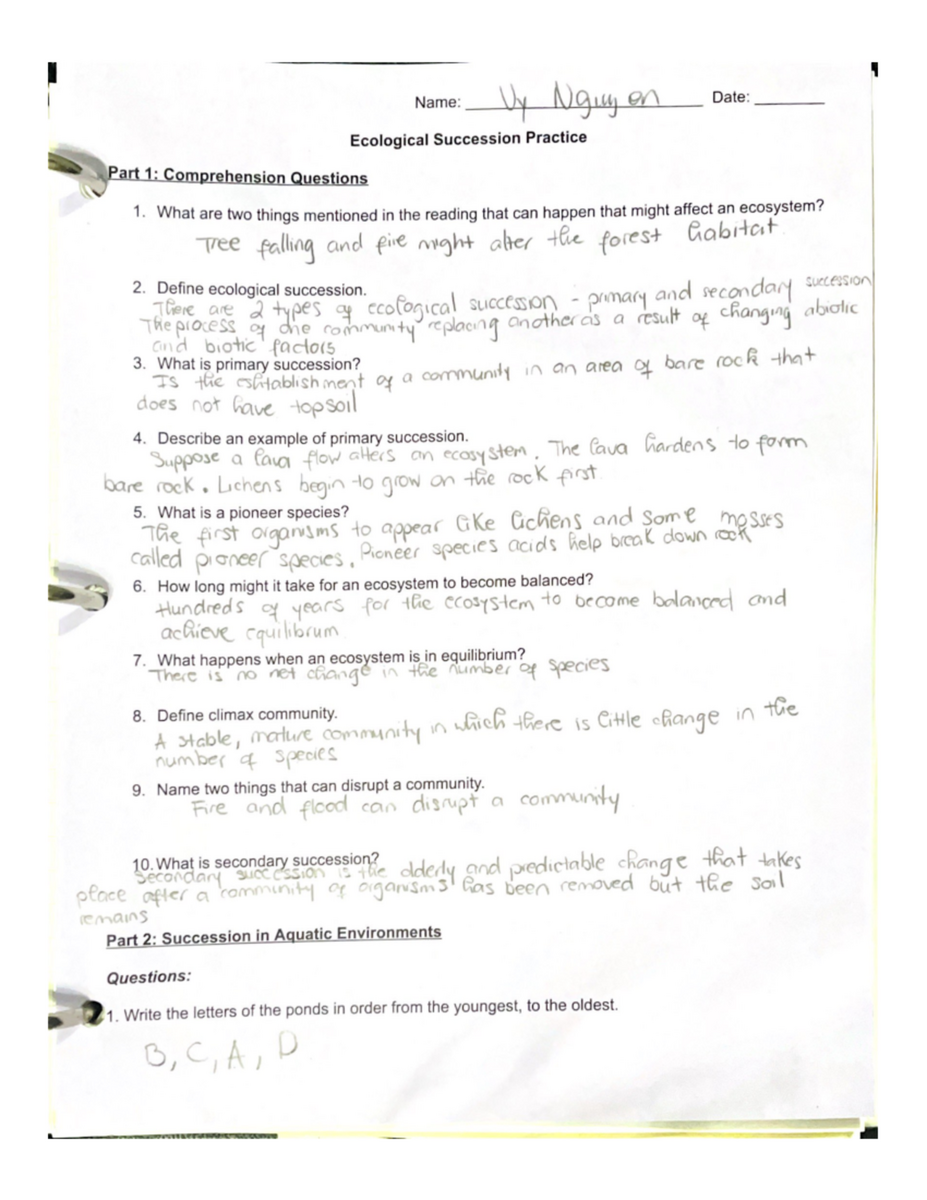 Name: Vy Nguyen Date:
Ecological Succession Practice
Part 1: Comprehension Questions
1. What are two things mentioned in the reading that can happen that might affect an ecosystem?
Tree falling and fire might alter the forest habitat
2. Define ecological succession.
There are 2 types of ecological succession - primary and secondary succession
The process of one community replacing another as a result of changing abiotic
and biotic factors
3. What is primary succession?
Is the estitablishment of a community in an area of bare rock that
does not have topsoil
4. Describe an example of primary succession.
Suppose a lava flow alters an ecosystem. The lava hardens to form
bare rock. Lichens begin to grow on the rock first
5. What is a pioneer species?
The first organisms to appear like lichens and some mosses
called pioneer species. Pioneer species acids help break down rock
6. How long might it take for an ecosystem to become balanced?
Hundreds of years for the ecosystem to become balanced and
achieve equilibrum
7. What happens when an ecosystem is in equilibrium?
There is no net change in the number of species
8. Define climax community.
A stable, mature community in which there is little change in the
number of species
9. Name two things that can disrupt a community.
Fire and flood can disrupt a community
10. What is secondary succession?
Secondary succession is the olderly and predictable change that takes
place after a community of organisms has been removed but the soil
remains
Part 2: Succession in Aquatic Environments
Questions:
1. Write the letters of the ponds in order from the youngest, to the oldest.
B, C, A, D